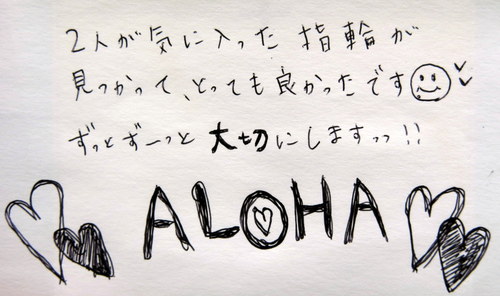 2人が気に入った指輪が
見つかって、とっても良かったです
ずっとずーっと大切にしますっっ!!
ALOHA